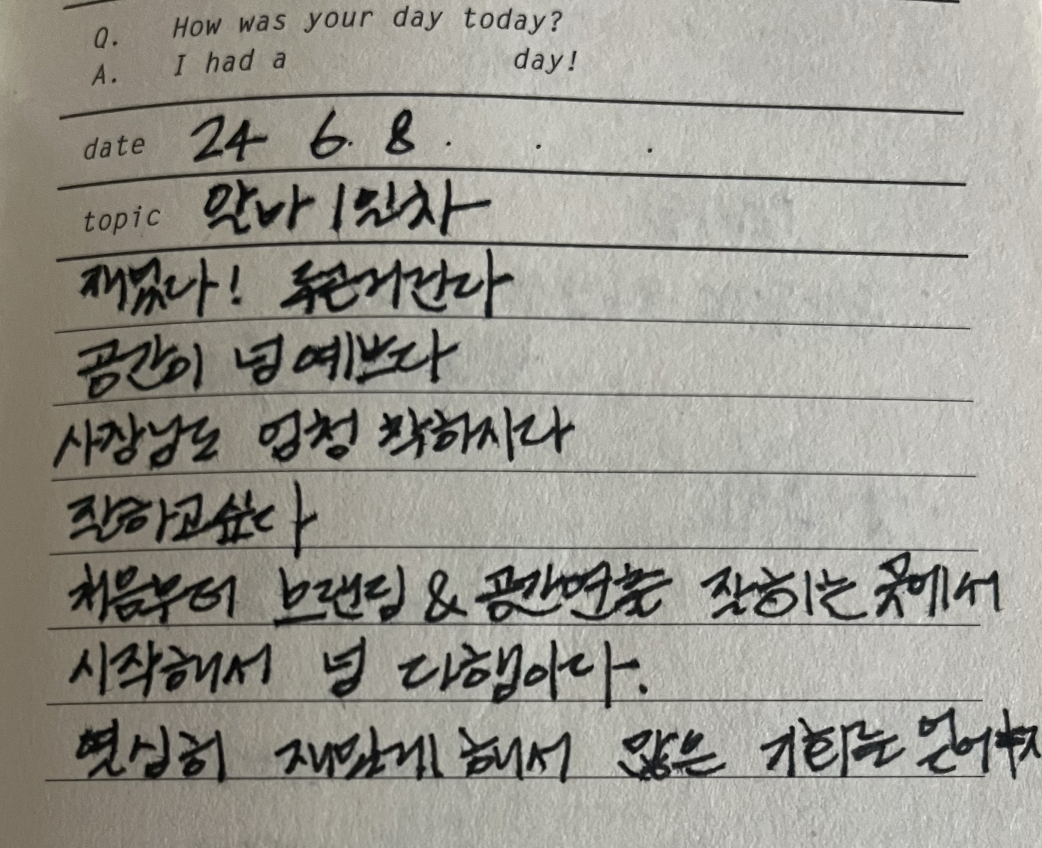 Q. How was your day today?
A. I had a day!
date 24 6. 8 . . .
topic 알바 1일차
재밌다! 두근거린다
공간이 넘 예쁘다
사장님도 엄청 착하시다
잘하고싶다
처음부터 브랜딩 & 공간연출 잘하는 곳에서
시작해서 넘 다행이다.
열심히 재밌게 해서 많은 기회를 얻어야지